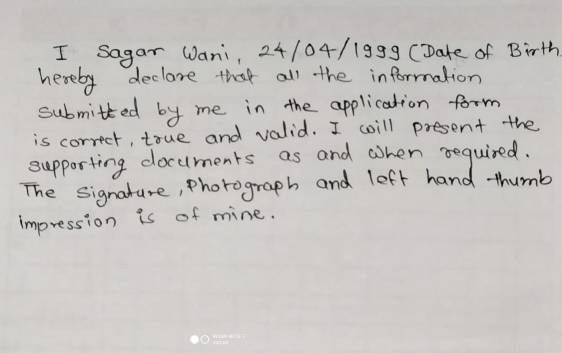 I Sagar Wani, 24/04/1999 (Date of Birth
hereby declare that all the information
submitted by me in the application form
is correct, true and valid. I will present the
supporting documents as and when required.
The Signature, Photograph and left hand thumb
impression is of mine.